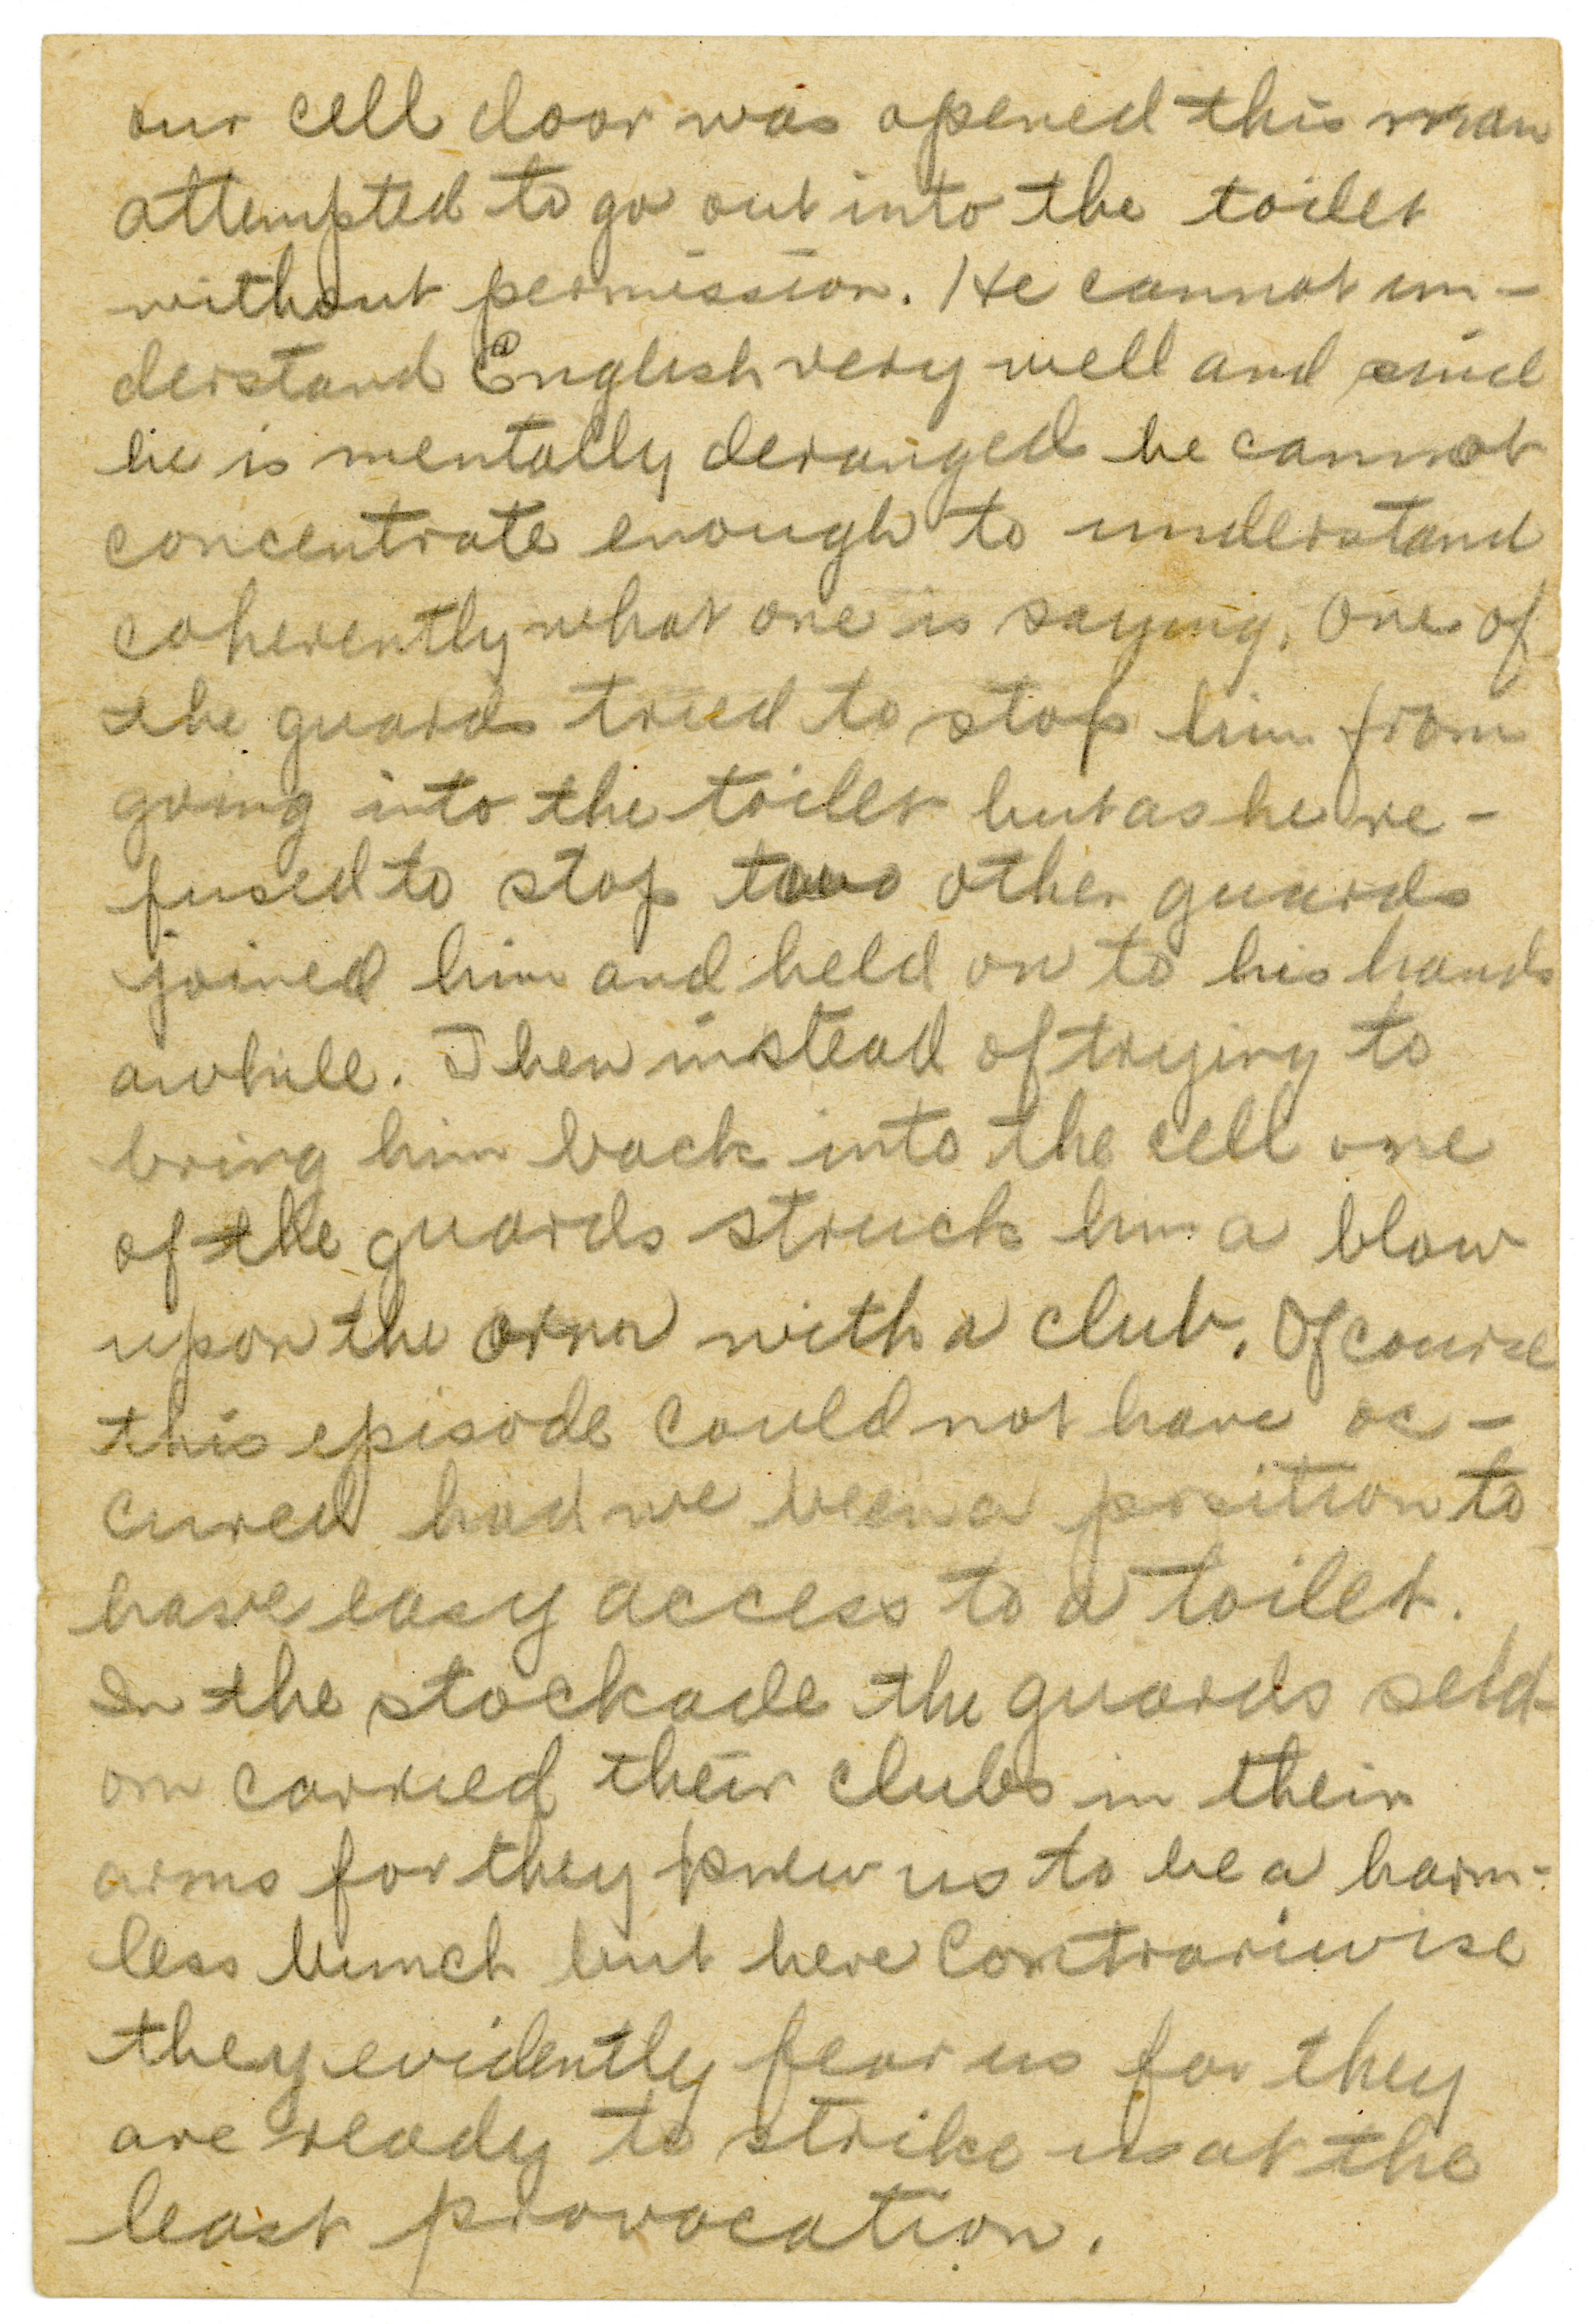 our cell door was opened this man
attempted to go out into the toilet
without permission. He cannot un-
derstand English very well and since
he is mentally deranged he cannot
concentrate enough to understand
coherently what one is saying. One of
the guards tried to stop him from
going into the toilet but as he re-
fused to stop two other guards
joined him and held on to his hands
awhile. Then instead of trying to
bring him back into the cell one
of the guards struck him a blow
upon the arm with a club. Of course
this episode could not have oc-
cured had we been a position to
have easy access to a toilet.
In the stockade the guards seld-
om carried their clubs in their
arms for they knew us to be a harm-
less bunch but here contrariwise
they evidently fear us for they
are ready to strike us at the
least provocation.